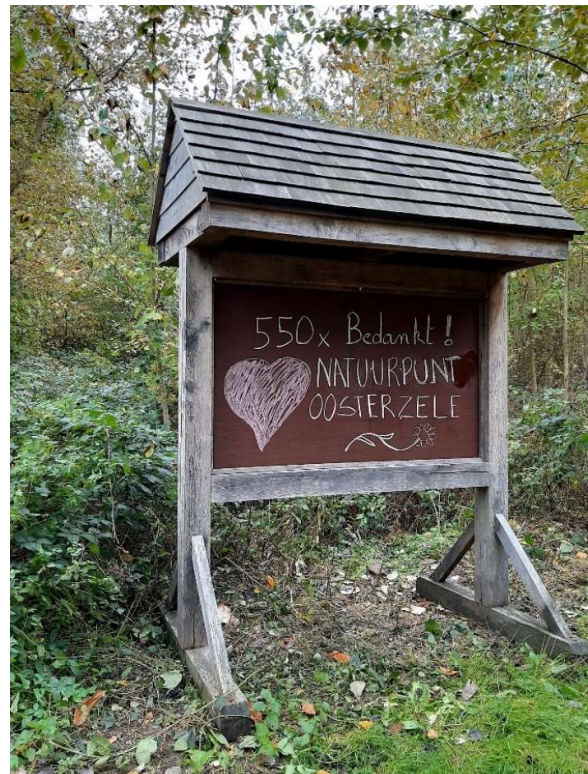 550x Bedankt!
NATUURPUNT
OOSTERZELE